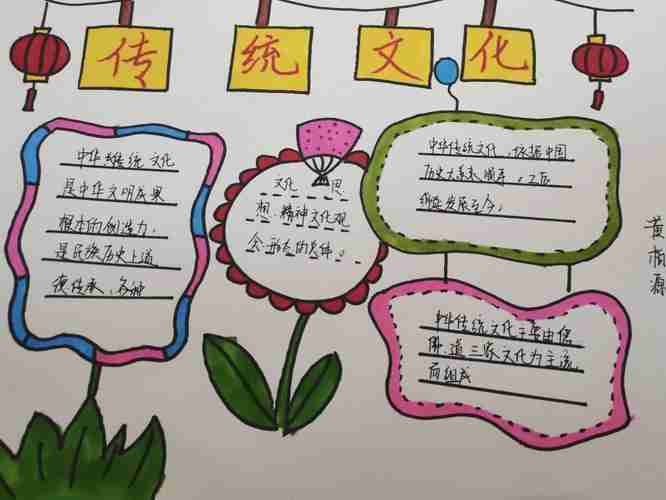 传统文化
中华传统文化
是中华文明成果
根本的创造力，
是民族历史上道
德传承、各种
文化 思
想、精神文化观
念形态的总体。
中华传统文化，依据中国
历史大系表顺序。之后
绵延发展至今，
中华传统文化主要由儒
佛、道三家文化为主流
而组成
黄
源